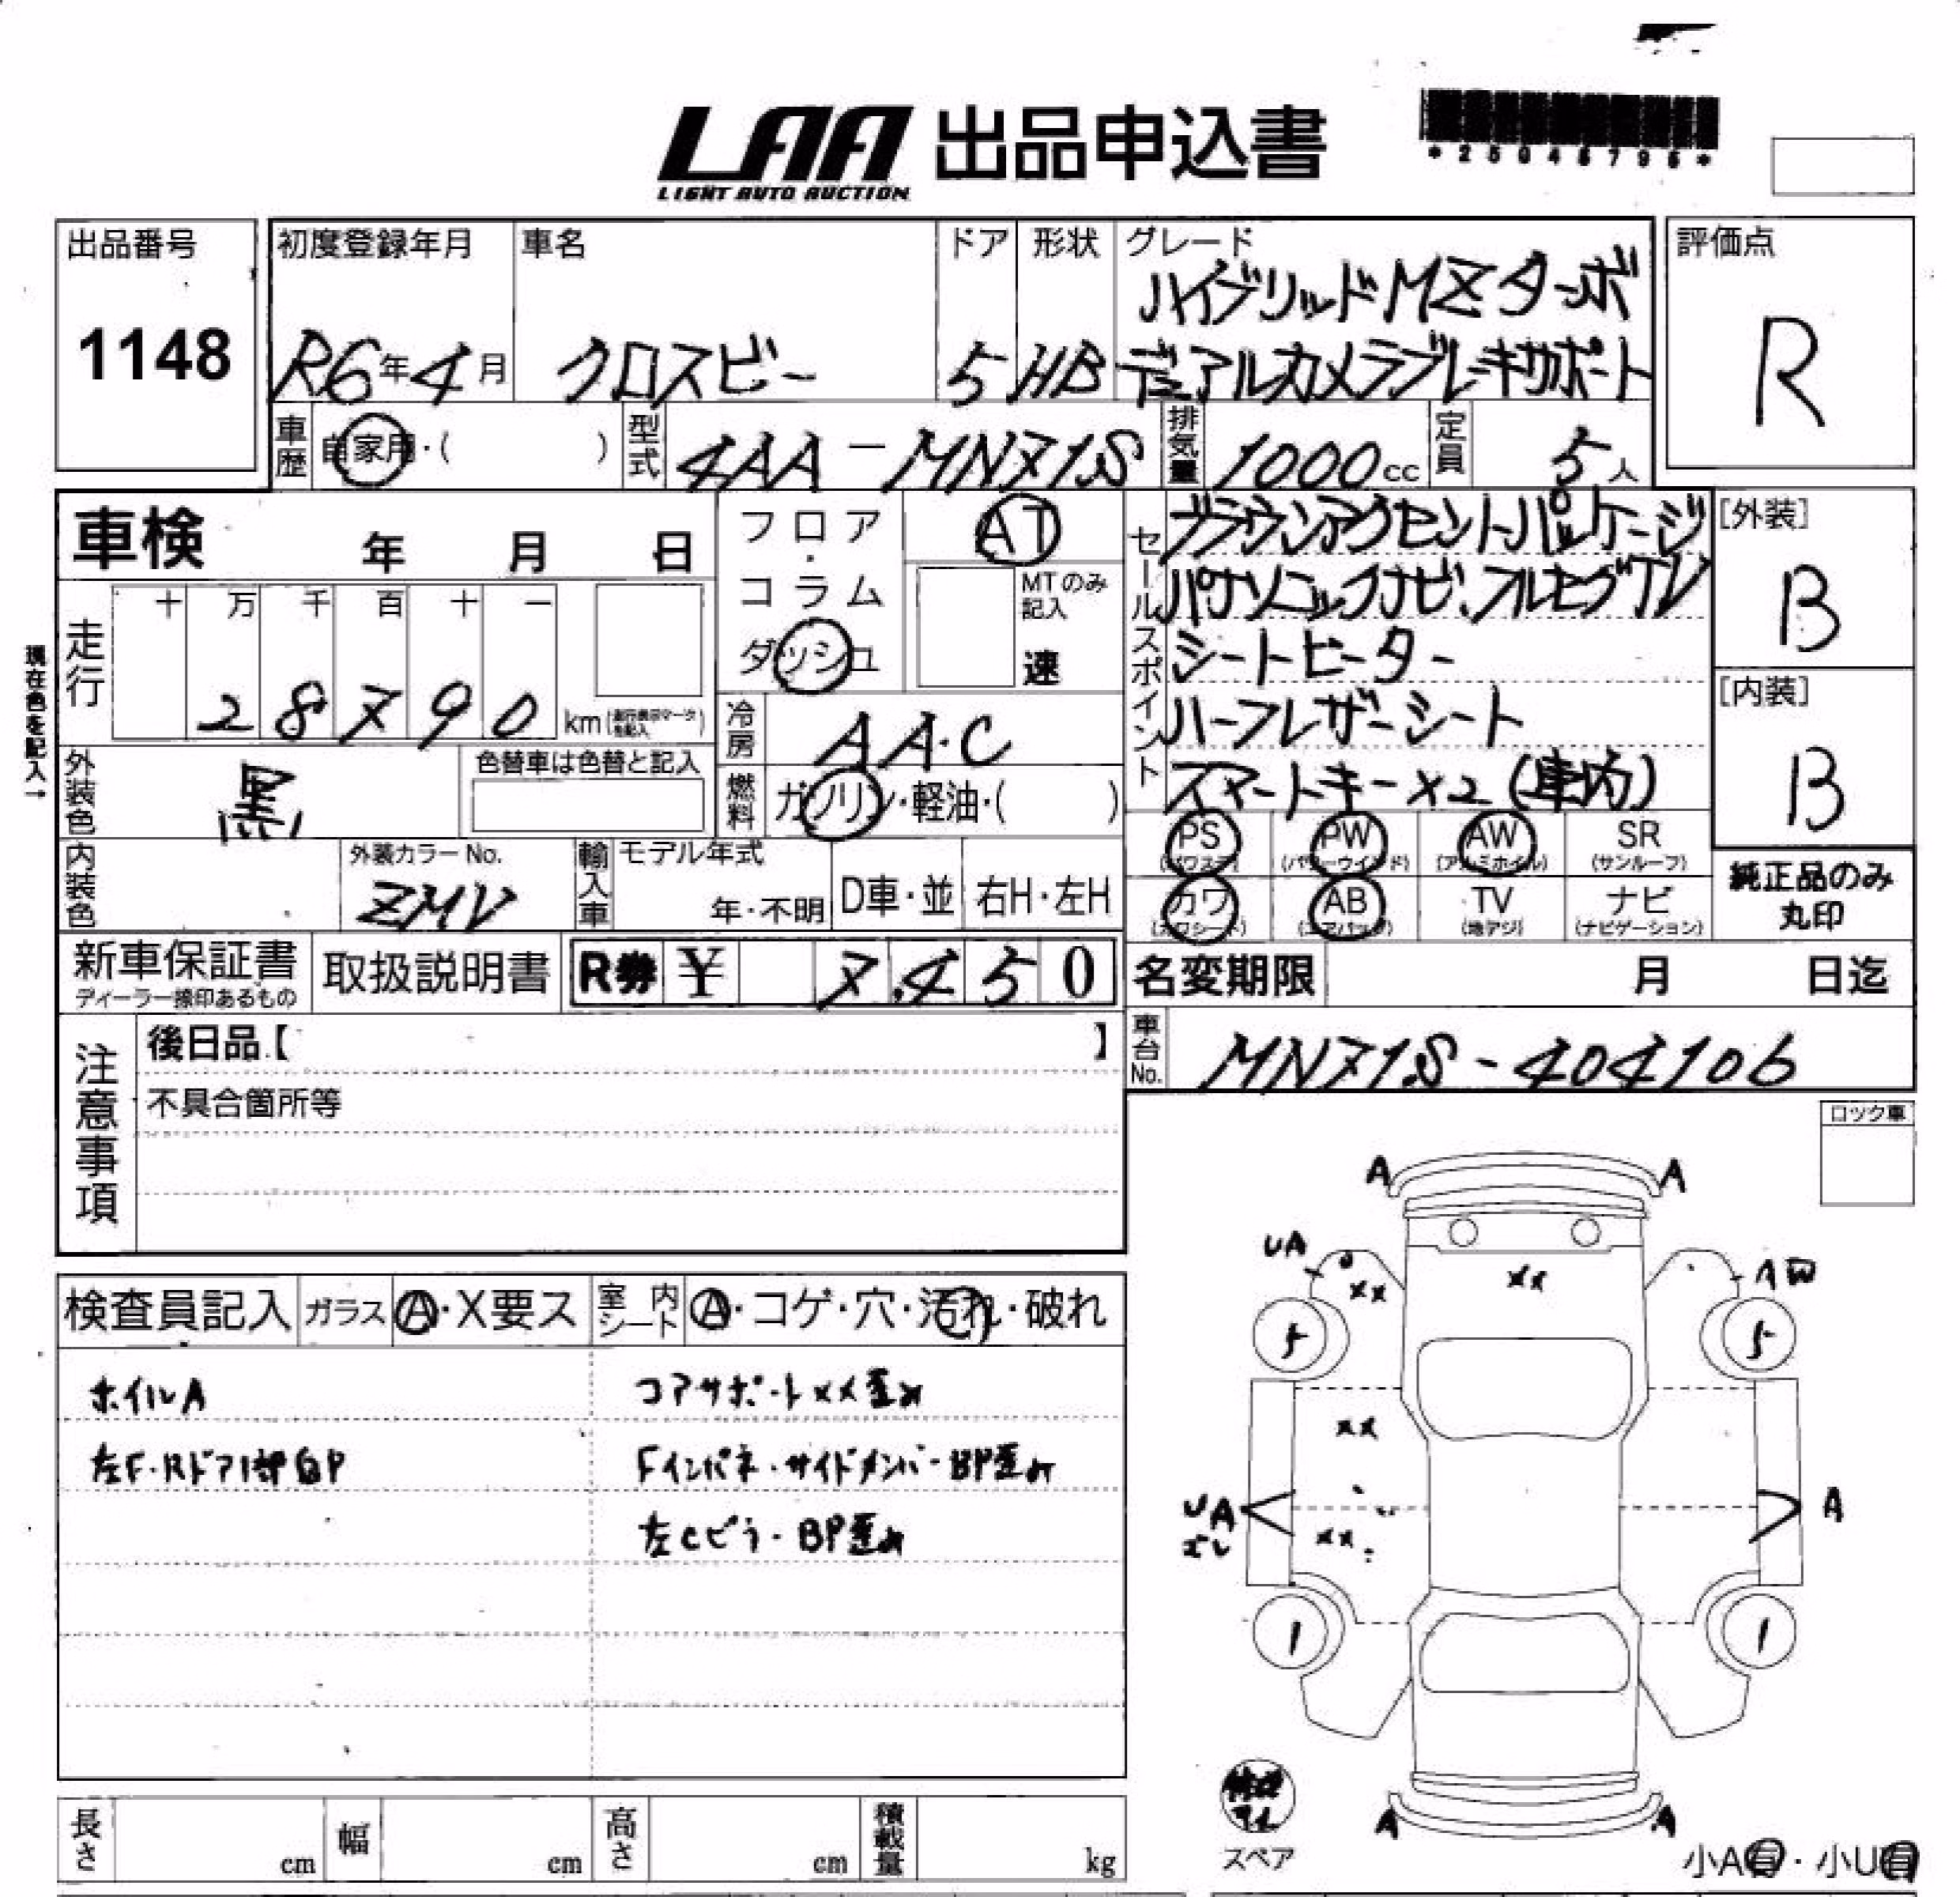 LAA 出品申込書
LIGHT AUTO AUCTION
出品番号
1148
初度登録年月
R6年4月
車名
クロスビー
ドア
5
形状
HB
グレード
ハイブリッドMZターボ
デュアルカメラブレーキサポート
評価点
R
車歴
自家用・( )
型式
4AA-MN71S
排気量
1000cc
定員
5人
車検 年 月 日
フロア・コラム
ダッシュ
AT
MTのみ記入
速
現在色を記入→
走行
十 万 千 百 十 一
28790 km
冷房
AA・C
外装色
黒
色替車は色替と記入
燃料
ガソリン・軽油・( )
内装色
外装カラーNo.
ZMV
輸入車
モデル年式
年・不明
D車・並
右H・左H
セールスポイント
ブラウンアクセントパッケージ
パナソニックナビ、フルセグTV
シートヒーター
ハーフレザーシート
スマートキー×2(車内)
[外装]
B
[内装]
B
PS PW AW SR
(パワステ) (パワーウインド) (アルミホイル) (サンルーフ)
カワ AB TV ナビ
(カワシート) (エアバッグ) (地デジ) (ナビゲーション)
純正品のみ
丸印
新車保証書
ディーラー捺印あるもの
取扱説明書
R券 ¥ 7,450
名変期限 月 日迄
車台No.
MN71S-404106
注意事項
後日品【 】
不具合箇所等
ロック車
検査員記入
ガラス
A・X要ス
室内シート
A・コゲ・穴・汚れ・破れ
ホイルA
左F・Rドア内部白P
コアサポートXX歪み
Fインパネ・サイドメンバーBP歪み
左Cピラ・BP歪み
A A
UA
XX XX
5 5
XX
UA A
ズレ
XX
1 1
A A
スペア
小A有・小U有
長さ cm
幅 cm
高さ cm
積載量 kg